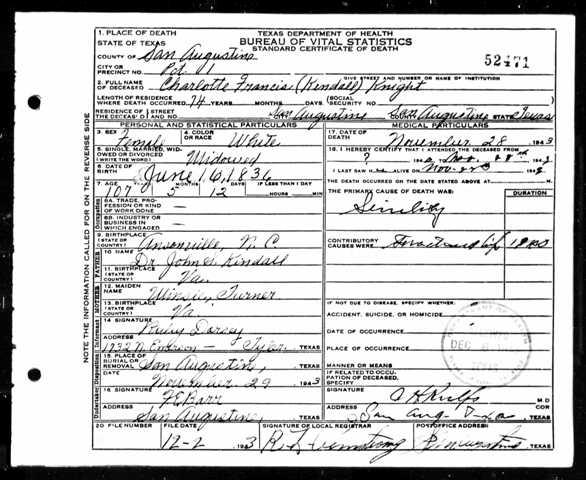 TEXAS DEPARTMENT OF HEALTH
BUREAU OF VITAL STATISTICS
STANDARD CERTIFICATE OF DEATH
52471
1. PLACE OF DEATH
STATE OF TEXAS
COUNTY OF San Augustine
CITY OR PRECINCT NO. Pct. 1
GIVE STREET AND NUMBER OR NAME OF INSTITUTION
2. FULL NAME OF DECEASED Charlotte Francis (Kendall) Knight
LENGTH OF RESIDENCE WHERE DEATH OCCURRED 74 YEARS MONTHS DAYS SOCIAL SECURITY NO.
RESIDENCE OF THE DECEASED STREET AND NO. San Augustine San Augustine STATE Texas
PERSONAL AND STATISTICAL PARTICULARS
3. SEX Female
4. COLOR OR RACE White
5. SINGLE, MARRIED, WIDOWED OR DIVORCED (WRITE THE WORD) Widowed
6. DATE OF BIRTH June 16, 1836
7. AGE 107 5 12 IF LESS THAN 1 DAY
YEARS MONTHS DAYS HOURS MIN
8A. TRADE, PROFESSION OR KIND OF WORK DONE
8B. INDUSTRY OR BUSINESS IN WHICH ENGAGED
9. BIRTHPLACE (STATE OR COUNTRY) Ansonville, N.C
10. NAME Dr John G. Kendall
11. BIRTHPLACE (STATE OR COUNTRY) Va.
12. MAIDEN NAME Turner
13. BIRTHPLACE (STATE OR COUNTRY) Va
14. SIGNATURE Ruby Dorsey
ADDRESS 1732 N. Tyler TEXAS
15. PLACE OF BURIAL OR REMOVAL San Augustine, TEXAS
DATE November 29 1943
16. SIGNATURE Barr
ADDRESS San Augustine TEXAS
MEDICAL PARTICULARS
17. DATE OF DEATH November 28 1943
18. I HEREBY CERTIFY THAT I ATTENDED THE DECEASED FROM
? TO Nov. 28th 194
I LAST SAW H ALIVE ON Nov. 194
THE DEATH OCCURRED ON THE DATE STATED ABOVE AT M.
THE PRIMARY CAUSE OF DEATH WAS: DURATION
Senility
CONTRIBUTORY CAUSES WERE: Fractured hip
IF NOT DUE TO DISEASE, SPECIFY WHETHER:
ACCIDENT, SUICIDE, OR HOMICIDE
DATE OF OCCURRENCE
PLACE OF OCCURRENCE
MANNER OR MEANS
IF RELATED TO OCCUPATION OF DECEASED, SPECIFY
SIGNATURE M.D
ADDRESS San Aug. Texas
20 FILE NUMBER FILE DATE 12-2 1943 SIGNATURE OF LOCAL REGISTRAR POSTOFFICE ADDRESS TEXAS
NOTE THE INFORMATION CALLED FOR ON THE REVERSE SIDE